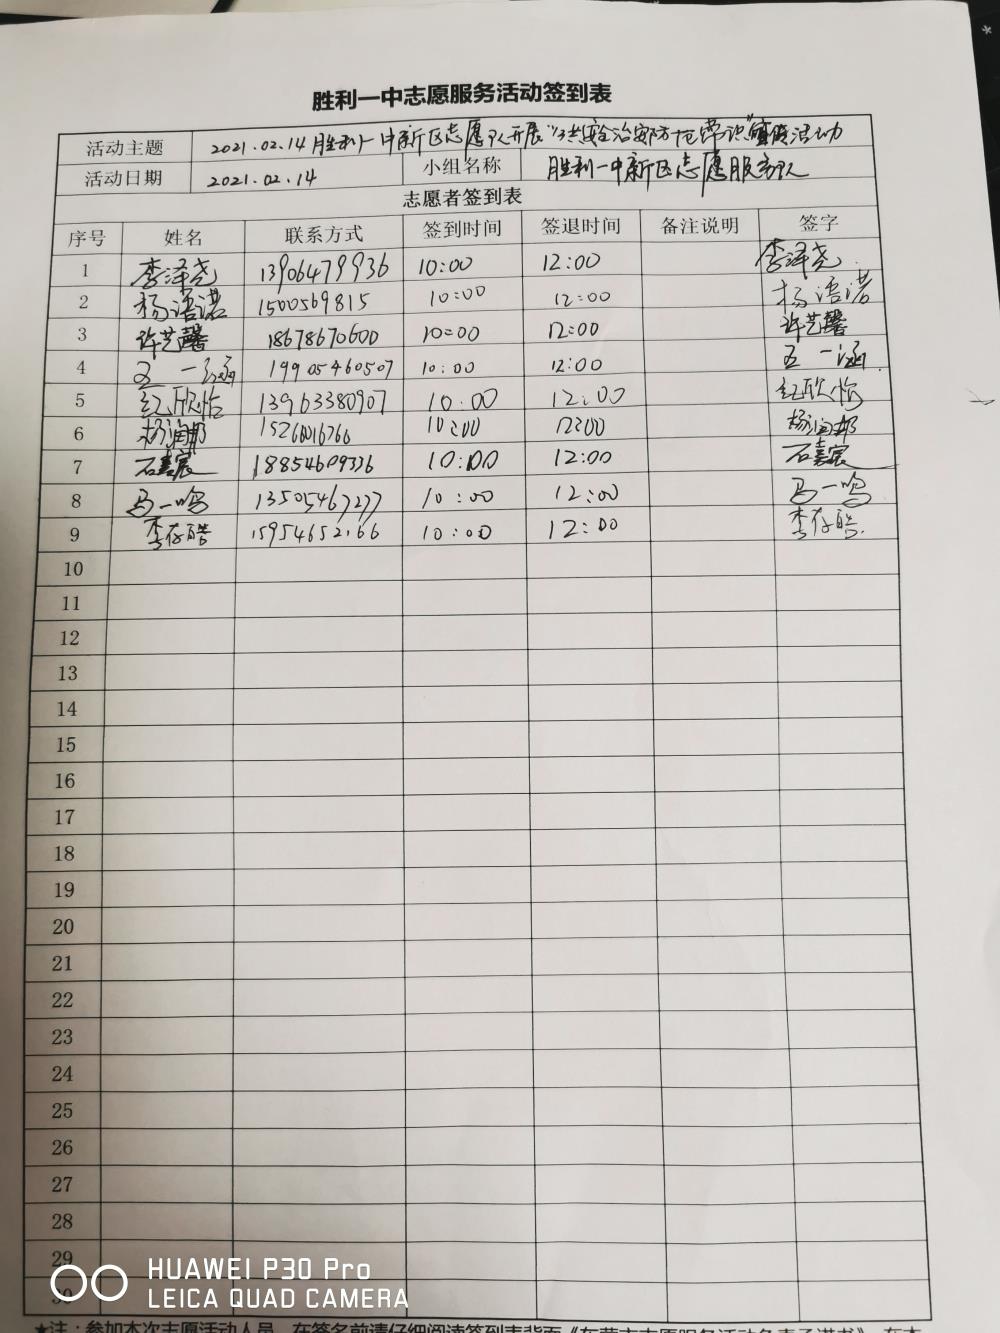 胜利一中志愿服务活动签到表
活动主题 2021.02.14胜利一中新区志愿队开展"公共安全治安防范常识"宣传活动
活动日期 2021.02.14 小组名称 胜利一中新区志愿服务队
志愿者签到表
序号 姓名 联系方式 签到时间 签退时间 备注说明 签字
1 李泽尧 13906479936 10:00 12:00 李泽尧
2 杨语诺 1500569815 10:00 12:00 杨语诺
3 许艺馨 18678670600 10:00 12:00 许艺馨
4 王一涵 19905460507 10:00 12:00 王一涵
5 纪欣怡 13963380907 10:00 12:00 纪欣怡
6 杨润邦 15266016766 10:00 12:00 杨润邦
7 石嘉宸 18854609336 10:00 12:00 石嘉宸
8 马一鸣 13505467277 10:00 12:00 马一鸣
9 李存皓 15954652166 10:00 12:00 李存皓
10
11
12
13
14
15
16
17
18
19
20
21
22
23
24
25
26
27
28
29
30
HUAWEI P30 Pro
LEICA QUAD CAMERA
★注:参加本次志愿活动人员,在签名前请仔细阅读签到表背面《东营市志愿服务活动免责承诺书》,在本